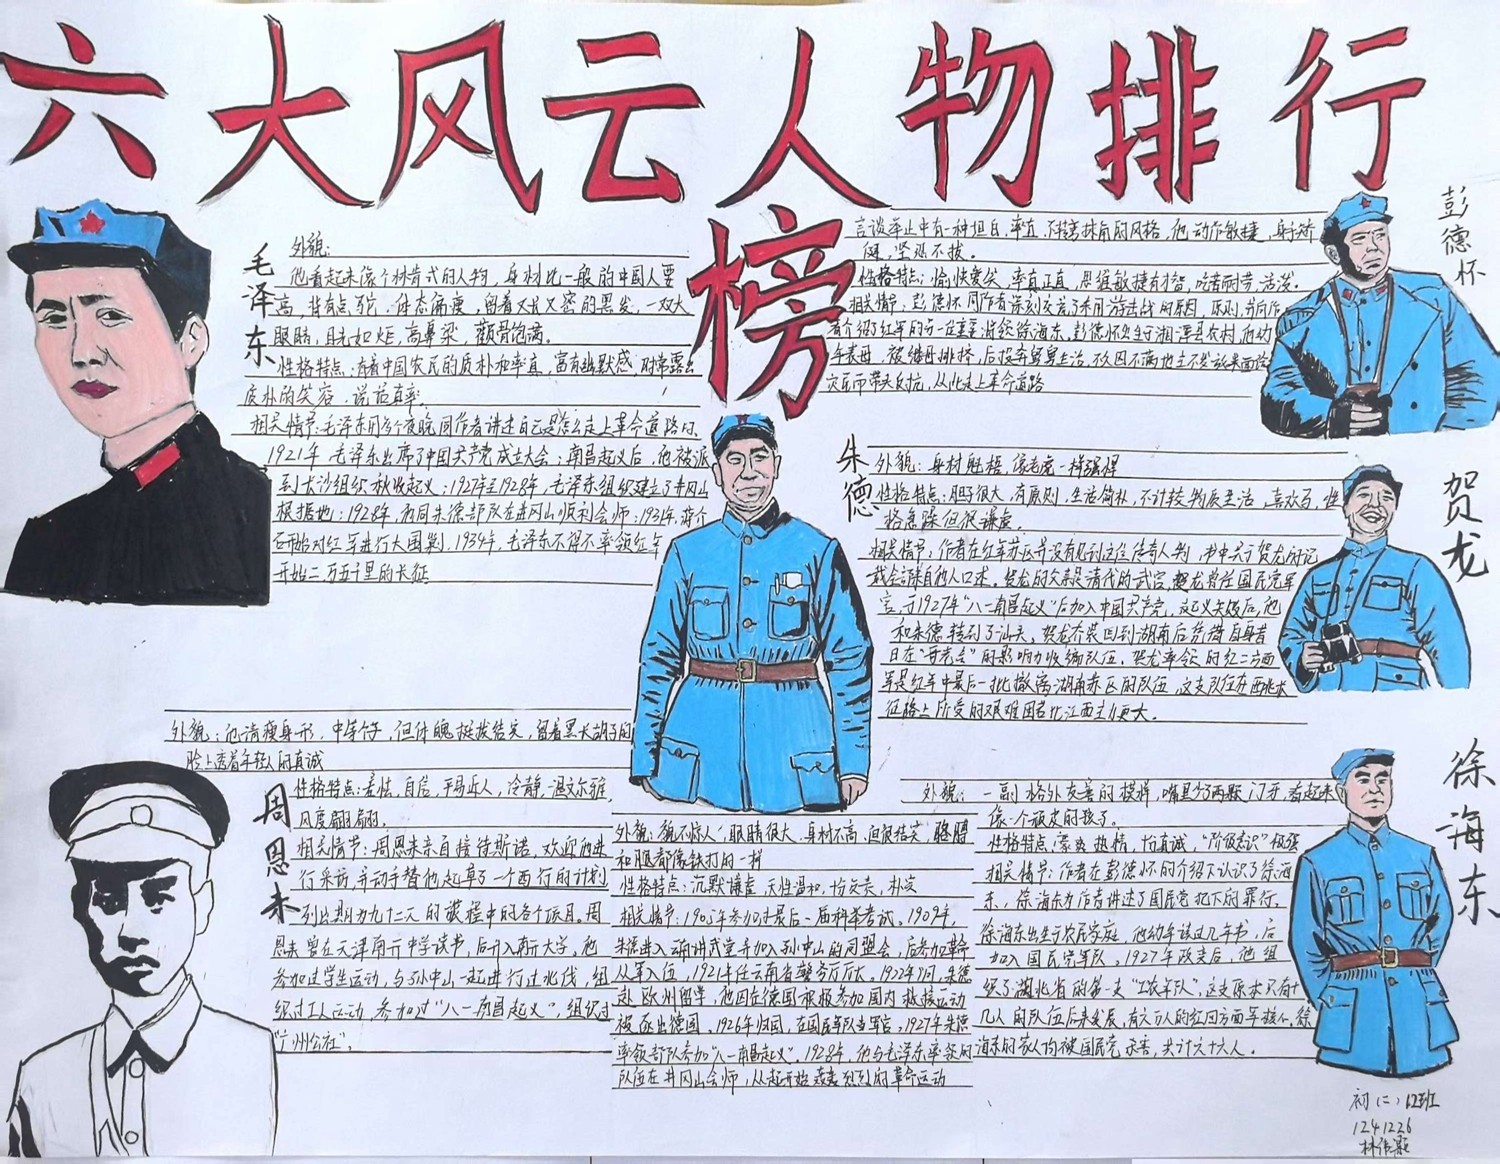 六大风云人物排行
榜
毛泽东
外貌:
他看起来像个林肯式的人物,身材比一般的中国人要
高,背有点驼,体态偏瘦,留着又长又密的黑发,一双大
眼睛,目光如炬,高鼻梁,颧骨饱满。
性格特点:有着中国农民的质朴和率直,富有幽默感,时常露出
质朴的笑容,说话直率。
相关情节:毛泽东用多个夜晚同作者讲述自己是怎么走上革命道路的。
1921年,毛泽东出席了中国共产党成立大会;南昌起义后,他被派
到长沙组织秋收起义;1927年至1928年,毛泽东组织建立了井冈山
根据地;1928年,和同朱德部队在井冈山顺利会师;1931年,蒋介
石开始对红军进行大围剿,1934年,毛泽东不得不率领红军
开始二万五千里的长征
彭德怀
言谈举止中有一种坦白、率直、不转弯抹角的风格,他动作敏捷,身子矫
健,坚忍不拔。
性格特点:愉快爱笑,率真正直,思维敏捷有智,吃苦耐劳,活泼。
相关情节:彭德怀同作者深刻交流了采用游击战的原因,原则,并向作
者介绍了红军的另一位重要将领徐海东,彭德怀出生于湘潭县农村,他幼
年丧母,被继母排挤,后投奔舅舅生活,
带头反抗,从此走上革命道路
朱德
贺龙
外貌:身材魁梧,像老虎一样强悍
性格特点:胆子很大,有原则,生活简朴,不计较物质生活,喜欢马,性
格急躁但很谦虚。
相关情节:作者在红军苏区并没有见到这位传奇人物,书中关于贺龙的记
载全部来自他人口述。贺龙的父亲是清代的武官,贺龙曾任国民党军
官,于1927年"八一南昌起义"后加入中国共产党,这起义失败后,他
和朱德转到了汕头。贺龙乔装回到湖南后凭借自身昔
日在"哥老会"的影响力收编队伍。贺龙率领的红二方面
军是红军中最后一批撤离湖南苏区的队伍,这支队伍在西北
征路上所受的艰难困苦比江西主力更大。
外貌:他清瘦身形,中等个子,但体魄挺拔结实,留着黑长胡子的
脸上透着年轻人的真诚
周恩来
性格特点:羞怯,自信,平易近人,冷静,温文尔雅,
风度翩翩。
相关情节:周恩来亲自接待斯诺,欢迎他进
行采访,并动手替他起草了一个西行的计划
列出期为九十二天的旅程中的各个项目。周
恩来曾在天津南开中学读书,后升入南开大学。他
参加过学生运动,与孙中山一起进行过北伐,组
织过工人运动,参加过"八一南昌起义",组织过
"广州公社"。
外貌:貌不惊人,眼睛很大,身材不高,但很结实,胳膊
和腿都像铁打的一样
性格特点:沉默谦虚,天性温和,朴实
相关情节:1905年参加过最后一届科举考试。1909年,
朱德进入云南讲武堂并加入孙中山的同盟会,后参加革命
从军入伍,1921年任云南省警务厅厅长。1922年9月,朱德
赴欧州留学,他因在德国积极参加国内救援运动
被逐出德国。1926年归国,在国民军队当军官,1927年朱德
率领部队参加"八一南昌起义"。1928年,他与毛泽东率领的
队伍在井冈山会师,从此开始轰轰烈烈的革命运动
徐海东
外貌:一副格外友善的模样,嘴里少了两颗门牙,看起来
像一个顽皮的孩子。
性格特点:豪爽热情,真诚,"阶级意识"极强
相关情节:作者在彭德怀的介绍下认识了徐海
东,徐海东为作者讲述了国民党犯下的罪行。
徐海东出生于农民家庭,他幼年读过几年书,后
加入国民党军队。1927年政变后,他组
织了湖北省的第一支"工农军队",这支原本只有十
几人的队伍后来发展,有六万人的红四方面军核心。徐
海东的家人均被国民党杀害,共计六十六人。
初(二)12班
1241226